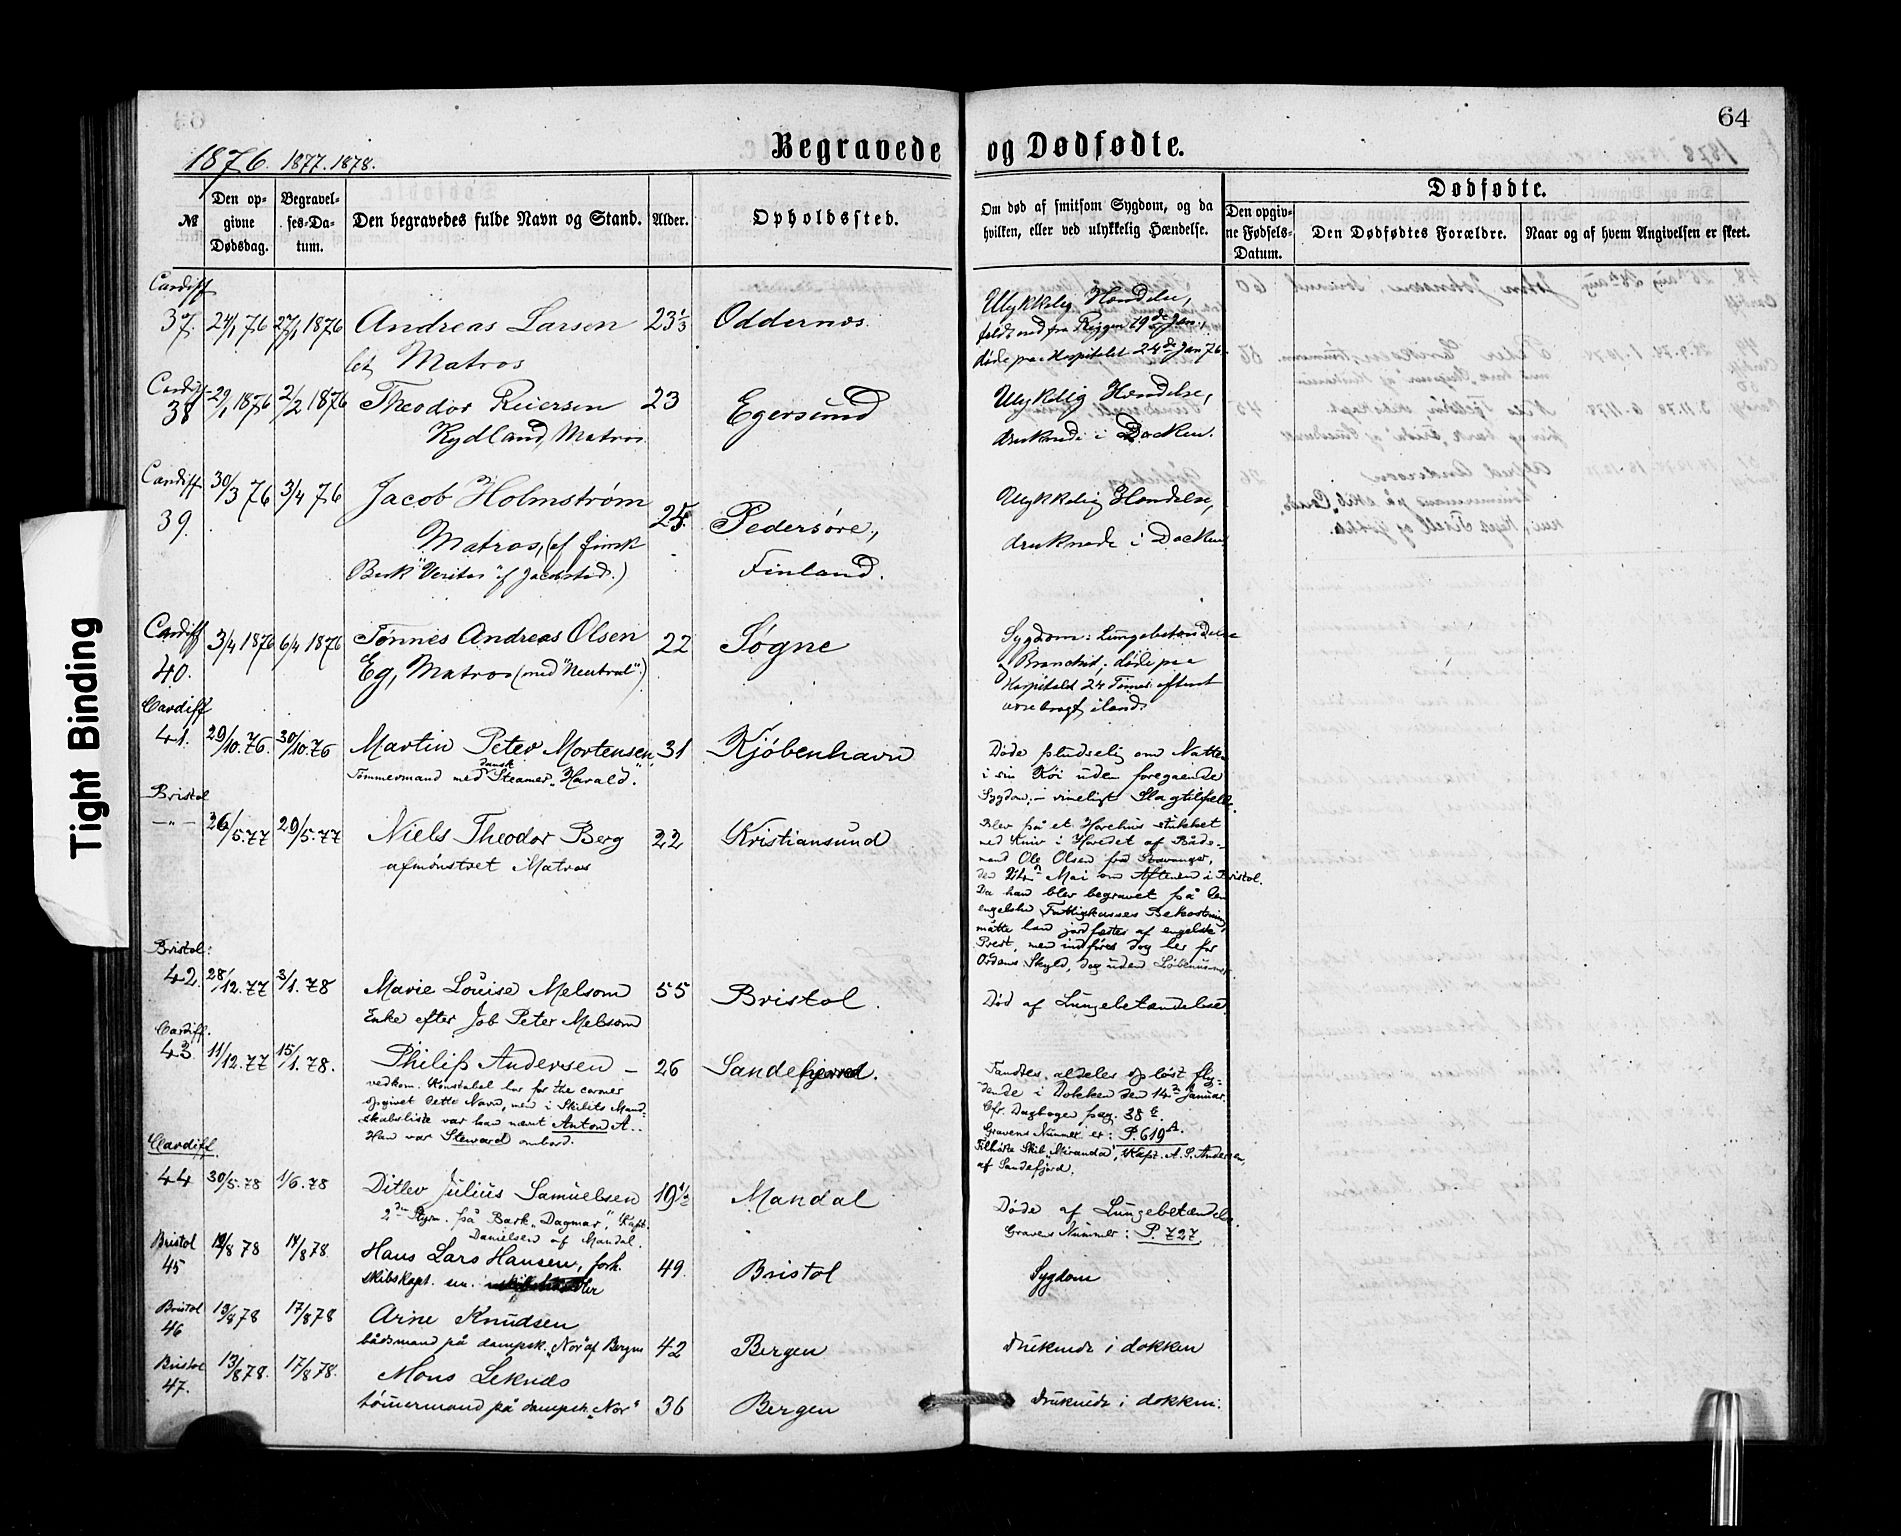 64
Begravede og Dødfødte.
1876. 1877. 1878.
№
Den opgivne Dødsdag.
Begravelses-Datum.
Den begravedes fulde Navn og Stand.
Alder.
Opholdssted.
Om død af smitsom Sygdom, og da hvilken, eller ved ulykkelig Hændelse.
Dødfødte.
Den opgivne Fødsels-Datum.
Den Dødfødtes Forældre.
Naar og af hvem Angivelsen er skeet.
Tight Binding
Cardiff
37. 24/1 76 27/1 1876 Andreas Larsen 23⅓ Oddernes.
let Matros
Ulykkelig Hændelse,
faldt ned fra Riggen 19de Jan.,
døde paa Hospitalet 24de Jan 76.
Cardiff
38 29/1 1876 2/2 1876 Theodor Reiersen 23 Egersund
Rydland, Matros.
Ulykkelig Hændelse,
druknede i Docken.
Cardiff
39. 30/3 76 3/4 76 Jacob Holmstrøm 25. Pedersöre,
Matros, (af finsk Finland.
Bark "Veritas" af Jacobstad.)
Ulykkelig Hændelse,
druknede i Docken.
Cardiff
40. 3/4 1876 6/4 1876 Tønnes Andreas Olsen 22 Søgne
Eg, Matros (med "Neutral".)
Sygdom: Lungebetændelse
Bronchit; døde paa
Hospitalet 24 Timer efterat
være bragt iland.
Cardiff
41. 29/10.76. 30/10.76 Martin Peter Mortensen, 31 Kjöbenhavn
Tømmermand med dansk Steamer „Harald".
Døde pludselig om Natten
i sin Køi uden foregaaende
Sygdom, – rimeligt Slagtilfælde.
Bristol
—„— 26/5.77 29/5.77 Niels Theodor Berg 22 Kristiansund
afmønstret Matros
Blev på et Horehus stukket
med Kniv i Hovedet af Båds-
mand Ole Olsen fra Stavanger,
den Mai om Aftenen i Bristol.
Da han blev begravet på den
engelske Fattigkasses Bekostning
måtte han jordfæstes af engelsk
Prest, men indføres dog her for
Ordens Skyld, dog uden Löbenummer.
Bristol:
42. 28/12.77 3/1.78 Marie Louise Melsom 55 Bristol.
Enke efter Job Peter Melsom
Død af Lungebetændelse.
Cardiff.
43. 11/12.77 15/1.78. Philip Andersen – 26 Sandefjorrd.
vedkom. Konstabel har for the corner
opgivet dette Navn, men i Skibets Mand-
skabsliste var han nævnt Anton A..
Han var Steward ombord.
Fandtes aldeles opløst fly-
dende i Dokken den 14de Januar.
Cfr. Dagbogen pag. 38
Gravens Nummer er: P. 619 A.
Tilhørte Skib „Miranda", Kapt. A. S. Andersen,
af Sandefjord.
Cardiff.
44 30/5.78 1/6.78 Ditlev Julius Samuelsen 19½ Mandal
2den Styrm. på Bark „Dagmar", Kapt.
Danielsen af Mandal.
Døde af Lungebetændelse.
Gravens Nummer: P. 727.
Bristol
45 12/8 78 14/8 78. Hans Lars Hansen, forh. 49. Bristol
skibskapt. sen.
Sygdom
Bristol
46 13/8 78 17/8 78 Arne Knudsen
bådsmand på dampsk. „Nor" af Bergen 42 Bergen
druknede i dokken
Bristol
47. 13/8 78. 17/8 78. Mons Leknes
tömmermand på dampsk. „Nor" 36 Bergen
druknede i dokken.